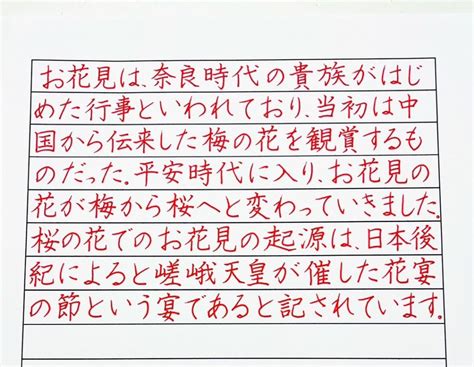 お花見は、奈良時代の貴族がはじ
めた行事といわれており、当初は中
国から伝来した梅の花を観賞するも
のだった。平安時代に入り、お花見の
花が梅から桜へと変わっていきました。
桜の花でのお花見の起源は、日本後
紀によると嵯峨天皇が催した花宴
の節という宴であると記されています。